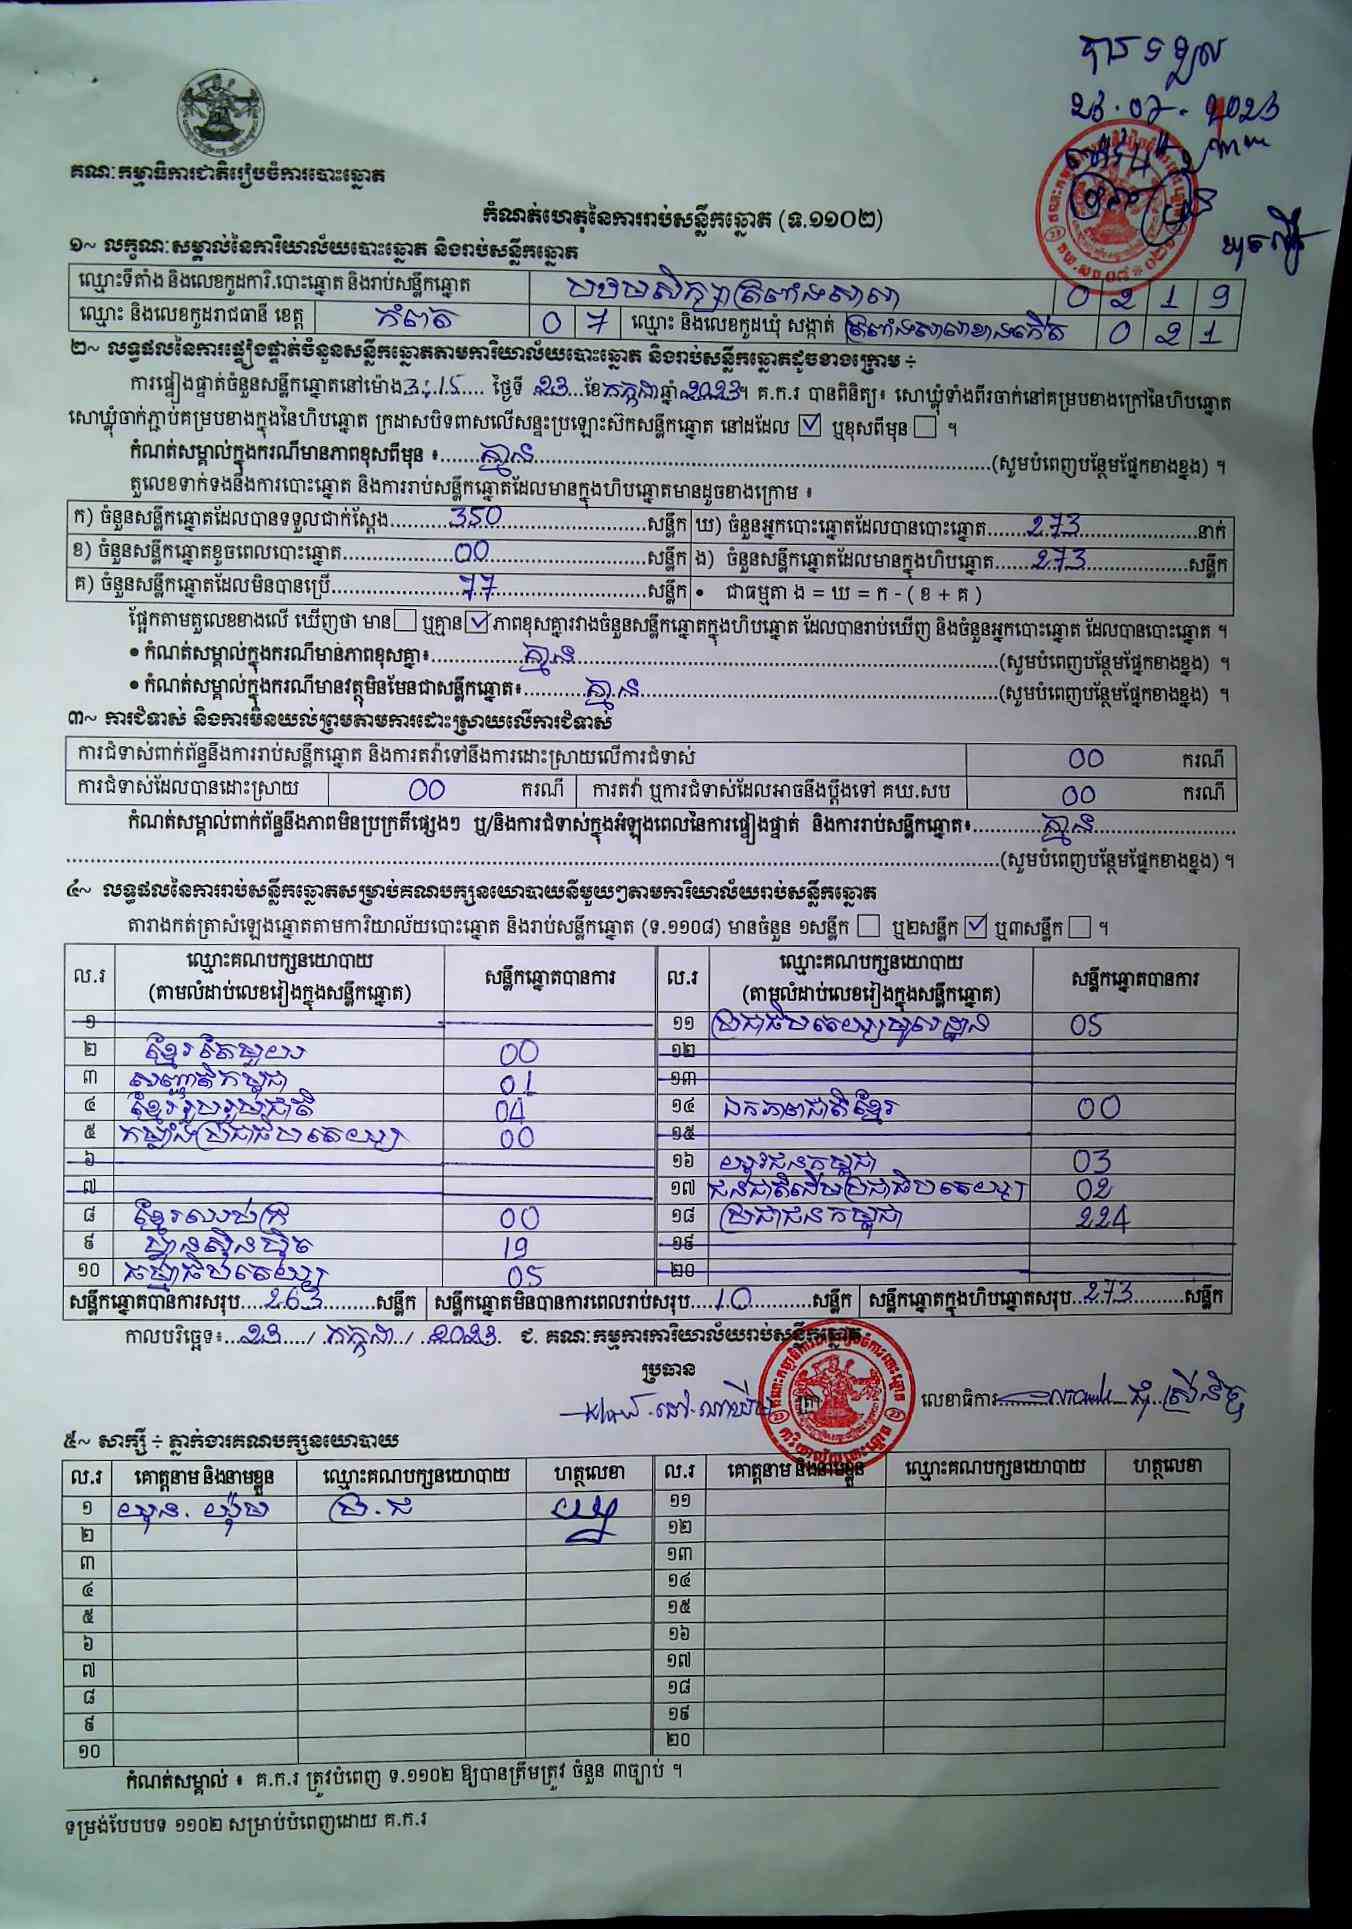 បានទទួល
23.07.2023
គណៈកម្មាធិការជាតិរៀបចំការបោះឆ្នោត
កំណត់ហេតុនៃការរាប់សន្លឹកឆ្នោត (ទ.១១០២)
១~ លក្ខណៈសម្គាល់នៃការិយាល័យបោះឆ្នោត និងរាប់សន្លឹកឆ្នោត
ឈ្មោះទីតាំង និងលេខកូដការិ.បោះឆ្នោត និងរាប់សន្លឹកឆ្នោត បឋមសិក្សាត្រពាំងសាលា 0 2 1 9
ឈ្មោះ និងលេខកូដរាជធានី ខេត្ត កំពត 0 7 ឈ្មោះ និងលេខកូដឃុំ សង្កាត់ ត្រពាំងសាលាខាងកើត 0 2 1
២~ លទ្ធផលនៃការផ្ទៀងផ្ទាត់ចំនួនសន្លឹកឆ្នោតតាមការិយាល័យបោះឆ្នោត និងរាប់សន្លឹកឆ្នោតដូចខាងក្រោម ÷
ការផ្ទៀងផ្ទាត់ចំនួនសន្លឹកឆ្នោតនៅម៉ោង 3:15 ថ្ងៃទី 23 ខែ កក្កដា ឆ្នាំ 2023។ គ.ក.រ បានពិនិត្យ៖ សោឃ្លុំទាំងពីរចាក់នៅគម្របខាងក្រៅនៃហិបឆ្នោត
សោឃ្លុំចាក់ភ្ជាប់គម្របខាងក្នុងនៃហិបឆ្នោត ក្រដាសបិទពាសលើសន្ទះប្រឡោះស៊កសន្លឹកឆ្នោត នៅដដែល ☑ ឬខុសពីមុន ☐ ។
កំណត់សម្គាល់ក្នុងករណីមានភាពខុសពីមុន ៖ គ្មាន (សូមបំពេញបន្ថែមផ្នែកខាងខ្នង) ។
តួលេខទាក់ទងនឹងការបោះឆ្នោត និងការរាប់សន្លឹកឆ្នោតដែលមានក្នុងហិបឆ្នោតមានដូចខាងក្រោម ៖
ក) ចំនួនសន្លឹកឆ្នោតដែលបានទទួលជាក់ស្តែង 350 សន្លឹក ឃ) ចំនួនអ្នកបោះឆ្នោតដែលបានបោះឆ្នោត 273 នាក់
ខ) ចំនួនសន្លឹកឆ្នោតខូចពេលបោះឆ្នោត 00 សន្លឹក ង) ចំនួនសន្លឹកឆ្នោតដែលមានក្នុងហិបឆ្នោត 273 សន្លឹក
គ) ចំនួនសន្លឹកឆ្នោតដែលមិនបានប្រើ 77 សន្លឹក • ជាធម្មតា ង = ឃ = ក - ( ខ + គ )
ផ្អែកតាមតួលេខខាងលើ ឃើញថា មាន ☐ ឬគ្មាន ☑ ភាពខុសគ្នារវាងចំនួនសន្លឹកឆ្នោតក្នុងហិបឆ្នោត ដែលបានរាប់ឃើញ និងចំនួនអ្នកបោះឆ្នោត ដែលបានបោះឆ្នោត ។
• កំណត់សម្គាល់ក្នុងករណីមានភាពខុសគ្នា៖ គ្មាន (សូមបំពេញបន្ថែមផ្នែកខាងខ្នង) ។
• កំណត់សម្គាល់ក្នុងករណីមានវត្ថុមិនមែនជាសន្លឹកឆ្នោត៖ គ្មាន (សូមបំពេញបន្ថែមផ្នែកខាងខ្នង) ។
៣~ ការជំទាស់ និងការមិនយល់ព្រមតាមការដោះស្រាយលើការជំទាស់
ការជំទាស់ពាក់ព័ន្ធនឹងការរាប់សន្លឹកឆ្នោត និងការតវ៉ាទៅនឹងការដោះស្រាយលើការជំទាស់ 00 ករណី
ការជំទាស់ដែលបានដោះស្រាយ 00 ករណី ការតវ៉ា ឬការជំទាស់ដែលអាចនឹងប្តឹងទៅ គឃ.សប 00 ករណី
កំណត់សម្គាល់ពាក់ព័ន្ធនឹងភាពមិនប្រក្រតីផ្សេងៗ ឬ/និងការជំទាស់ក្នុងអំឡុងពេលនៃការផ្ទៀងផ្ទាត់ និងការរាប់សន្លឹកឆ្នោត៖ គ្មាន
(សូមបំពេញបន្ថែមផ្នែកខាងខ្នង) ។
៤~ លទ្ធផលនៃការរាប់សន្លឹកឆ្នោតសម្រាប់គណបក្សនយោបាយនីមួយៗតាមការិយាល័យរាប់សន្លឹកឆ្នោត
តារាងកត់ត្រាសំឡេងឆ្នោតតាមការិយាល័យបោះឆ្នោត និងរាប់សន្លឹកឆ្នោត (ទ.១១០៨) មានចំនួន ១សន្លឹក ☐ ឬ២សន្លឹក ☑ ឬ៣សន្លឹក ☐ ។
ល.រ ឈ្មោះគណបក្សនយោបាយ (តាមលំដាប់លេខរៀងក្នុងសន្លឹកឆ្នោត) សន្លឹកឆ្នោតបានការ ល.រ ឈ្មោះគណបក្សនយោបាយ (តាមលំដាប់លេខរៀងក្នុងសន្លឹកឆ្នោត) សន្លឹកឆ្នោតបានការ
១ ១១ ប្រជាធិបតេយ្យមូលដ្ឋាន 05
២ ខ្មែរតែមួយ 00 ១២
៣ សញ្ជាតិកម្ពុជា 01 ១៣
៤ ខ្មែររួបរួមជាតិ 04 ១៤ ឯកភាពជាតិខ្មែរ 00
៥ កម្លាំងប្រជាធិបតេយ្យ 00 ១៥
៦ ១៦ យុវជនកម្ពុជា 03
៧ ១៧ ជនជាតិដើមប្រជាធិបតេយ្យ 02
៨ ខ្មែរឈប់ក្រ 00 ១៨ ប្រជាជនកម្ពុជា 224
៩ ហ៊្វុនស៊ិនប៉ិច 19 ១៩
១០ ធម្មាធិបតេយ្យ 05 ២០
សន្លឹកឆ្នោតបានការសរុប 263 សន្លឹក សន្លឹកឆ្នោតមិនបានការពេលរាប់សរុប 10 សន្លឹក សន្លឹកឆ្នោតក្នុងហិបឆ្នោតសរុប 273 សន្លឹក
កាលបរិច្ឆេទ៖ 23 / កក្កដា / 2023 ជ. គណៈកម្មការការិយាល័យរាប់សន្លឹកឆ្នោត
ប្រធាន
លេខាធិការ
៥~ សាក្សី ÷ ភ្នាក់ងារគណបក្សនយោបាយ
ល.រ គោត្តនាម និងនាមខ្លួន ឈ្មោះគណបក្សនយោបាយ ហត្ថលេខា ល.រ គោត្តនាម និងនាមខ្លួន ឈ្មោះគណបក្សនយោបាយ ហត្ថលេខា
១ ប្រ.ជ ១១
២ ១២
៣ ១៣
៤ ១៤
៥ ១៥
៦ ១៦
៧ ១៧
៨ ១៨
៩ ១៩
១០ ២០
កំណត់សម្គាល់ ៖ គ.ក.រ ត្រូវបំពេញ ទ.១១០២ ឱ្យបានត្រឹមត្រូវ ចំនួន ៣ច្បាប់ ។
ទម្រង់បែបបទ ១១០២ សម្រាប់បំពេញដោយ គ.ក.រ